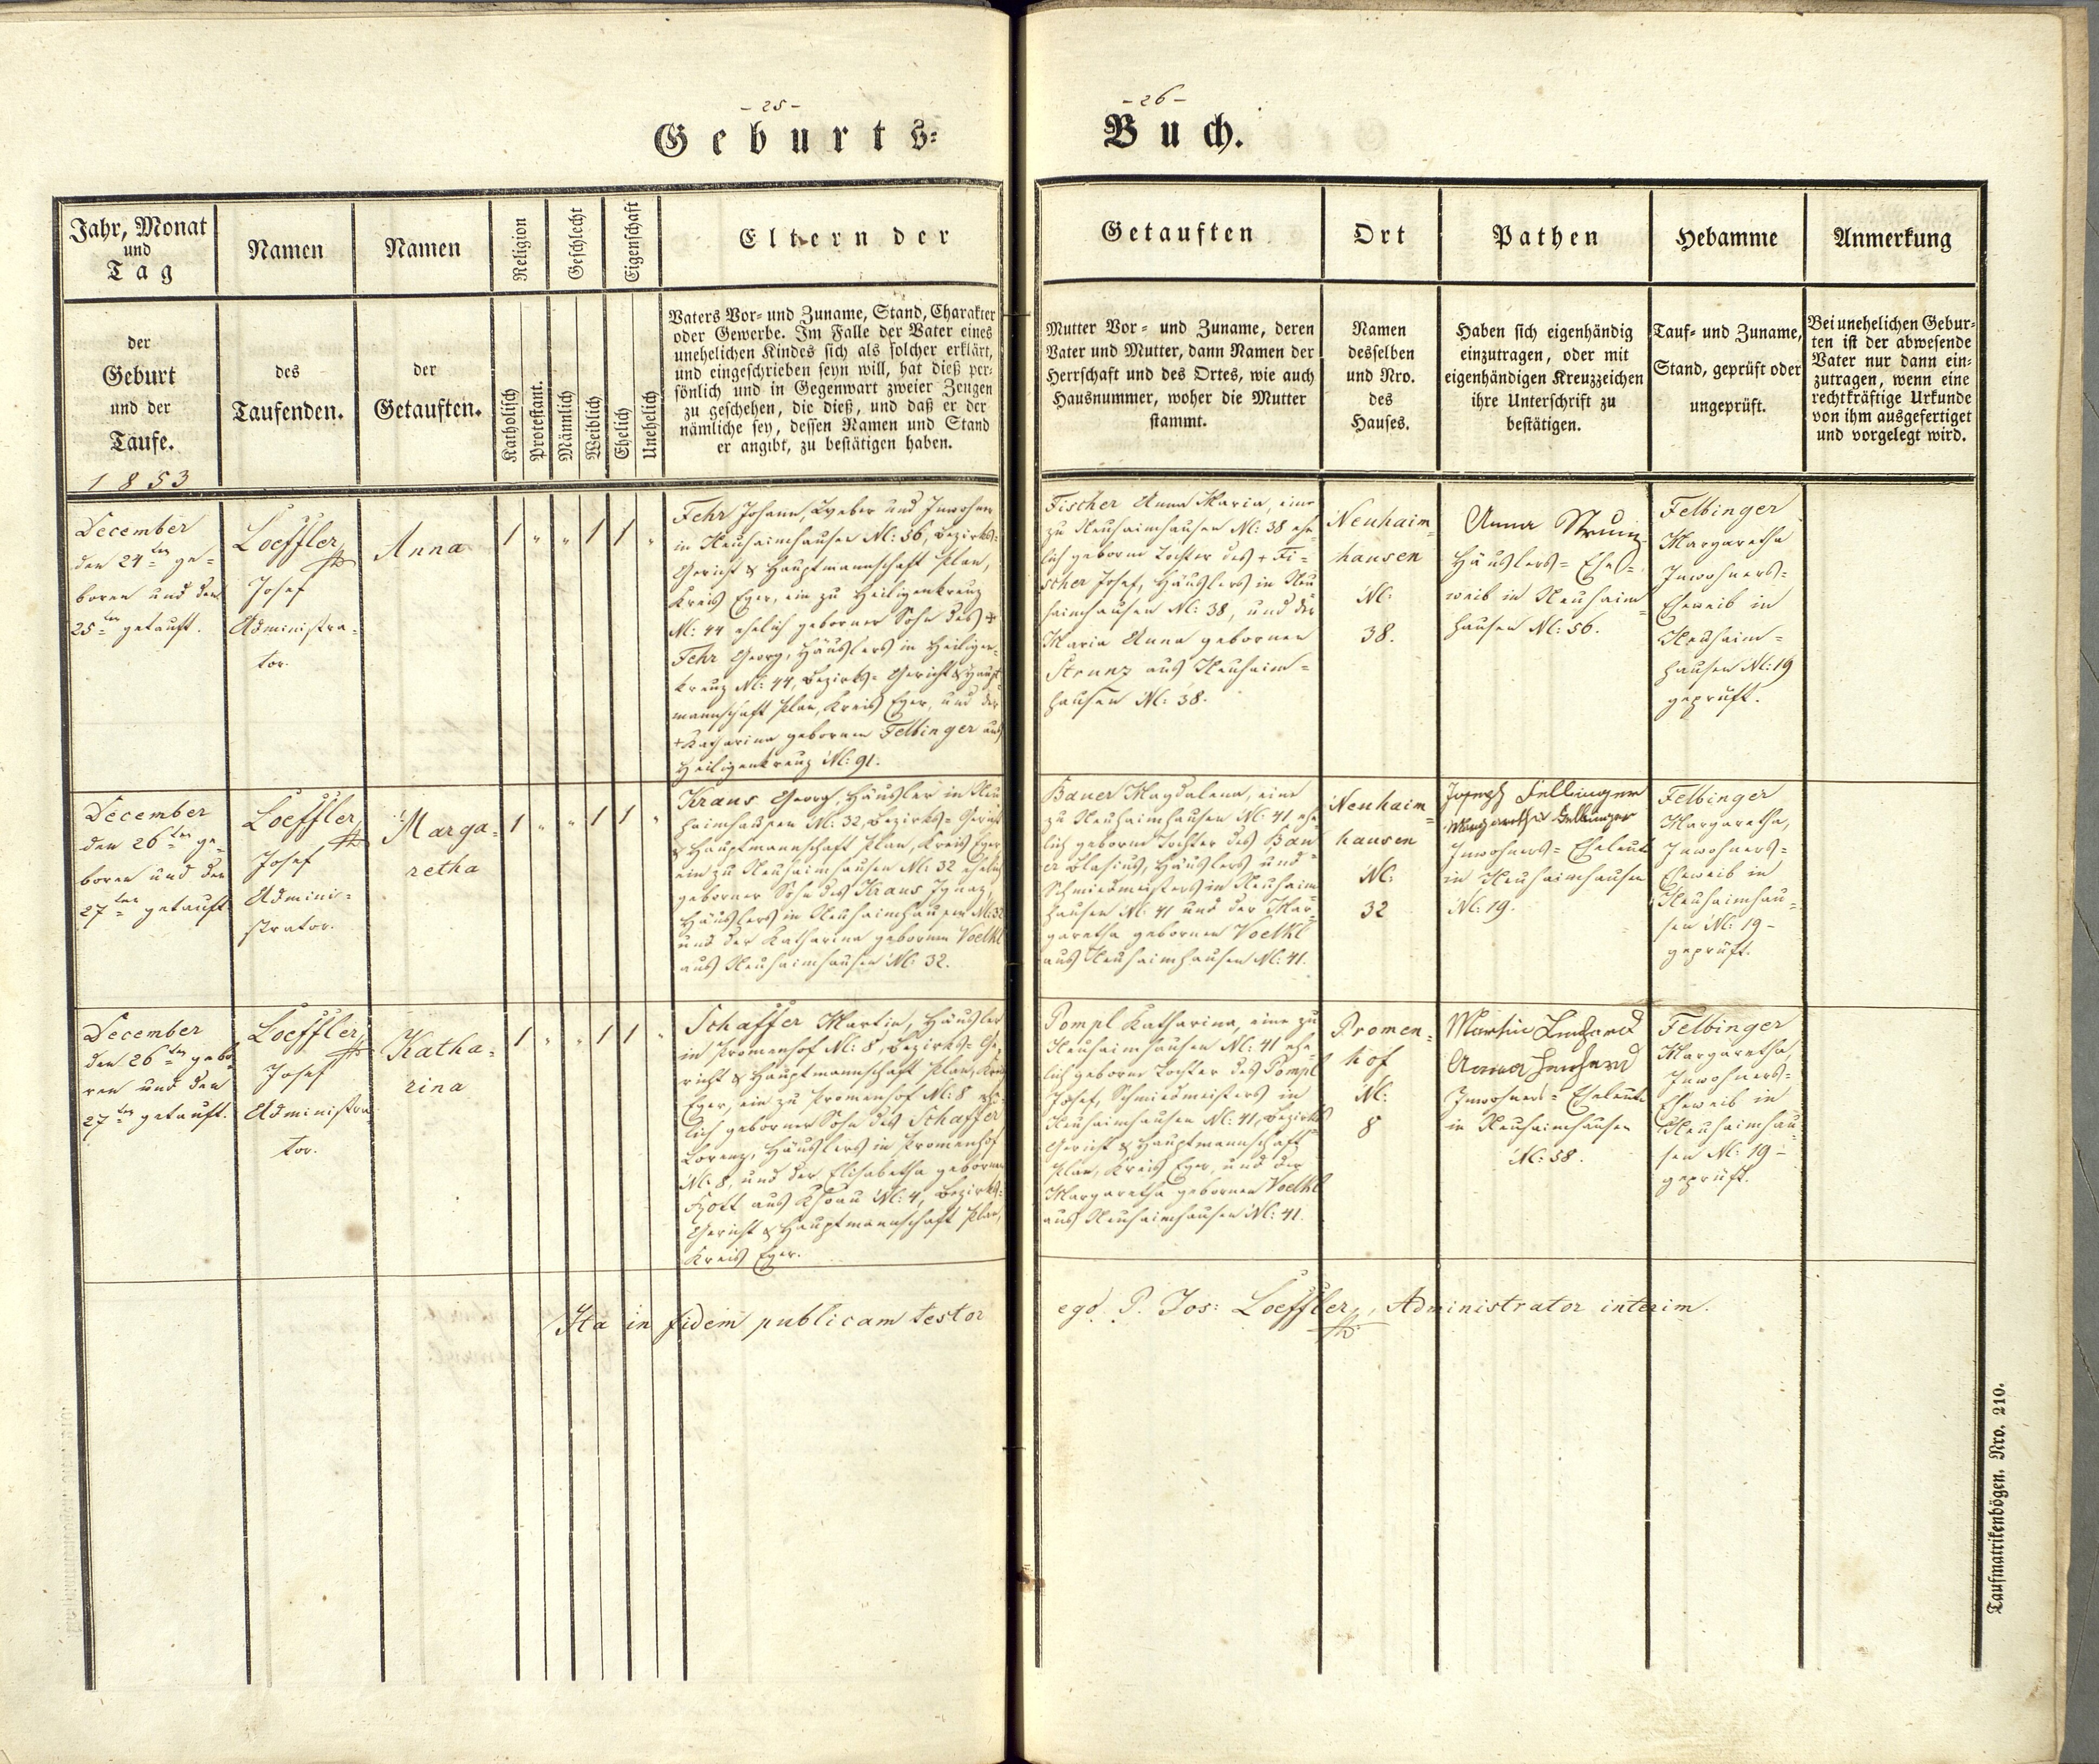 - 25 -
Geburts-
Jahr, Monat
und
Tag
Namen
Namen
Religion
Geschlecht
Eigenschaft
Eltern der
der
Geburt
und der
Taufe.
1853
des
Taufenden.
der
Getauften.
Katholisch
Protestant.
Männlich
Weiblich
Ehelich
Unehelich
Vaters Vor- und Zuname, Stand, Charakter
oder Gewerbe. Im Falle der Vater eines
unehelichen Kindes sich als solcher erklärt,
und eingeschrieben seyn will, hat dieß per-
sönlich und in Gegenwart zweier Zeugen
zu geschehen, die dieß, und daß er der
nämliche sey, dessen Namen und Stand
er angibt, zu bestätigen haben.
December
den 24ten ge-
boren und den
25ten getauft.
Loeffler
Josef
Administra-
tor.
Anna
1 " " 1 1 "
Fehr Johann, Weber und Inwohner
in Neuhaimhausen N: 56, Bezirks-
Gericht & Hauptmannschaft Plan,
Kreis Eger, ein zu Heiligenkreuz
N: 44 ehelich geborner Sohn des +
Fehr Georg, Häuslers in Heiligen-
kreuz N: 44, Bezirks-Gericht & Haupt-
mannschaft Plan, Kreis Eger, und der
+ Katharina gebornen Felbinger aus
Heiligenkreuz N: 91.
December
den 26ten ge-
boren und den
27ten getauft.
Loeffler
Josef
Admini-
strator.
Marga-
retha
1 " " 1 1 "
Kraus Georg, Häusler in Neu
haimhausen N: 32, Bezirks-Gericht
& Hauptmannschaft Plan, Kreis Eger
ein zu Neuhaimhausen N: 32 ehelich
geborner Sohn des Kraus Ignaz,
Häuslers in Neuhaimhausen N: 32
und der Katharina gebornen Voelkl
aus Neuhaimhausen N: 32.
December
den 26ten gebo-
ren und den
27ten getauft.
Loeffler
Josef
Administra-
tor.
Katha-
rina
1 " " 1 1 "
Schaffer Martin, Häusler
in Promenhof N: 8, Bezirks-Ge-
richt & Hauptmannschaft Plan, Kreis
Eger, ein zu Promenhof N: 8 ehe-
lich geborner Sohn des Schaffer
Lorenz, Häuslers in Promenhof
N: 8, und der Elisabetha gebornen
aus Khoau N: 4, Bezirks-
Gericht & Hauptmannschaft Plan,
Kreis Eger.
Ita in fidem publicam testor
- 26 -
Buch.
Getauften
Ort
Pathen
Hebamme
Anmerkung
Mutter Vor- und Zuname, deren
Vater und Mutter, dann Namen der
Herrschaft und des Ortes, wie auch
Hausnummer, woher die Mutter
stammt.
Namen
desselben
und Nro.
des
Hauses.
Haben sich eigenhändig
einzutragen, oder mit
eigenhändigen Kreuzzeichen
ihre Unterschrift zu
bestätigen.
Tauf- und Zuname,
Stand, geprüft oder
ungeprüft.
Bei unehelichen Gebur-
ten ist der abwesende
Vater nur dann ein-
zutragen, wenn eine
rechtkräftige Urkunde
von ihm ausgefertiget
und vorgelegt wird.
Fischer Anna Maria, eine
zu Neuhaimhausen N: 38 ehe-
lich geborne Tochter des + Fi-
scher Josef, Häuslers in Neu
haimhausen N: 38, und der
Maria Anna gebornen
Strunz aus Neuhaim-
hausen N: 38.
Neuhaim-
hausen
N:
38.
Anna Strunz
Häuslers-Ehe-
weib in Neuhaim-
hausen N: 56.
Felbinger
Margaretha
Inwohners-
Eheweib in
Neuhaim-
hausen N: 19
geprüft.
Bauer Magdalena, eine
zu Neuhaimhausen N: 41 ehe-
lich geborne Tochter des Bau-
er Blasius, Häuslers und
Schmiedmeisters in Neuhaim-
hausen N: 41 und der Mar-
garetha gebornen Voelkl
aus Neuhaimhausen N: 41.
Neuhaim-
hausen
N:
32
Joseph Felbinger
Margaretha Felbinger
Inwohners-Eheleute
in Neuhaimhausen
N: 19.
Felbinger
Margaretha,
Inwohners-
Eheweib in
Neuhaimhau-
sen N: 19 -
geprüft.
Pompl Katharina, eine zu
Neuhaimhausen N: 41 ehe-
lich geborne Tochter des Pompl
Josef, Schmiedmeisters in
Neuhaimhausen N: 41, Bezirks
Gericht & Hauptmannschaft
Plan, Kreis Eger, und der
Margaretha gebornen Voelkl
aus Neuhaimhausen N: 41.
Promen-
hof
N:
8
Martin Lenhard
Anna Lenhard
Inwohners-Eheleute
in Neuhaimhausen
N: 58.
Felbinger
Margaretha,
Inwohners-
Eheweib in
Neuhaimhau-
sen N: 19 -
geprüft.
ego P. Jos: Loeffler, Administrator interim.
Taufmatrikenbögen. Nro. 210.